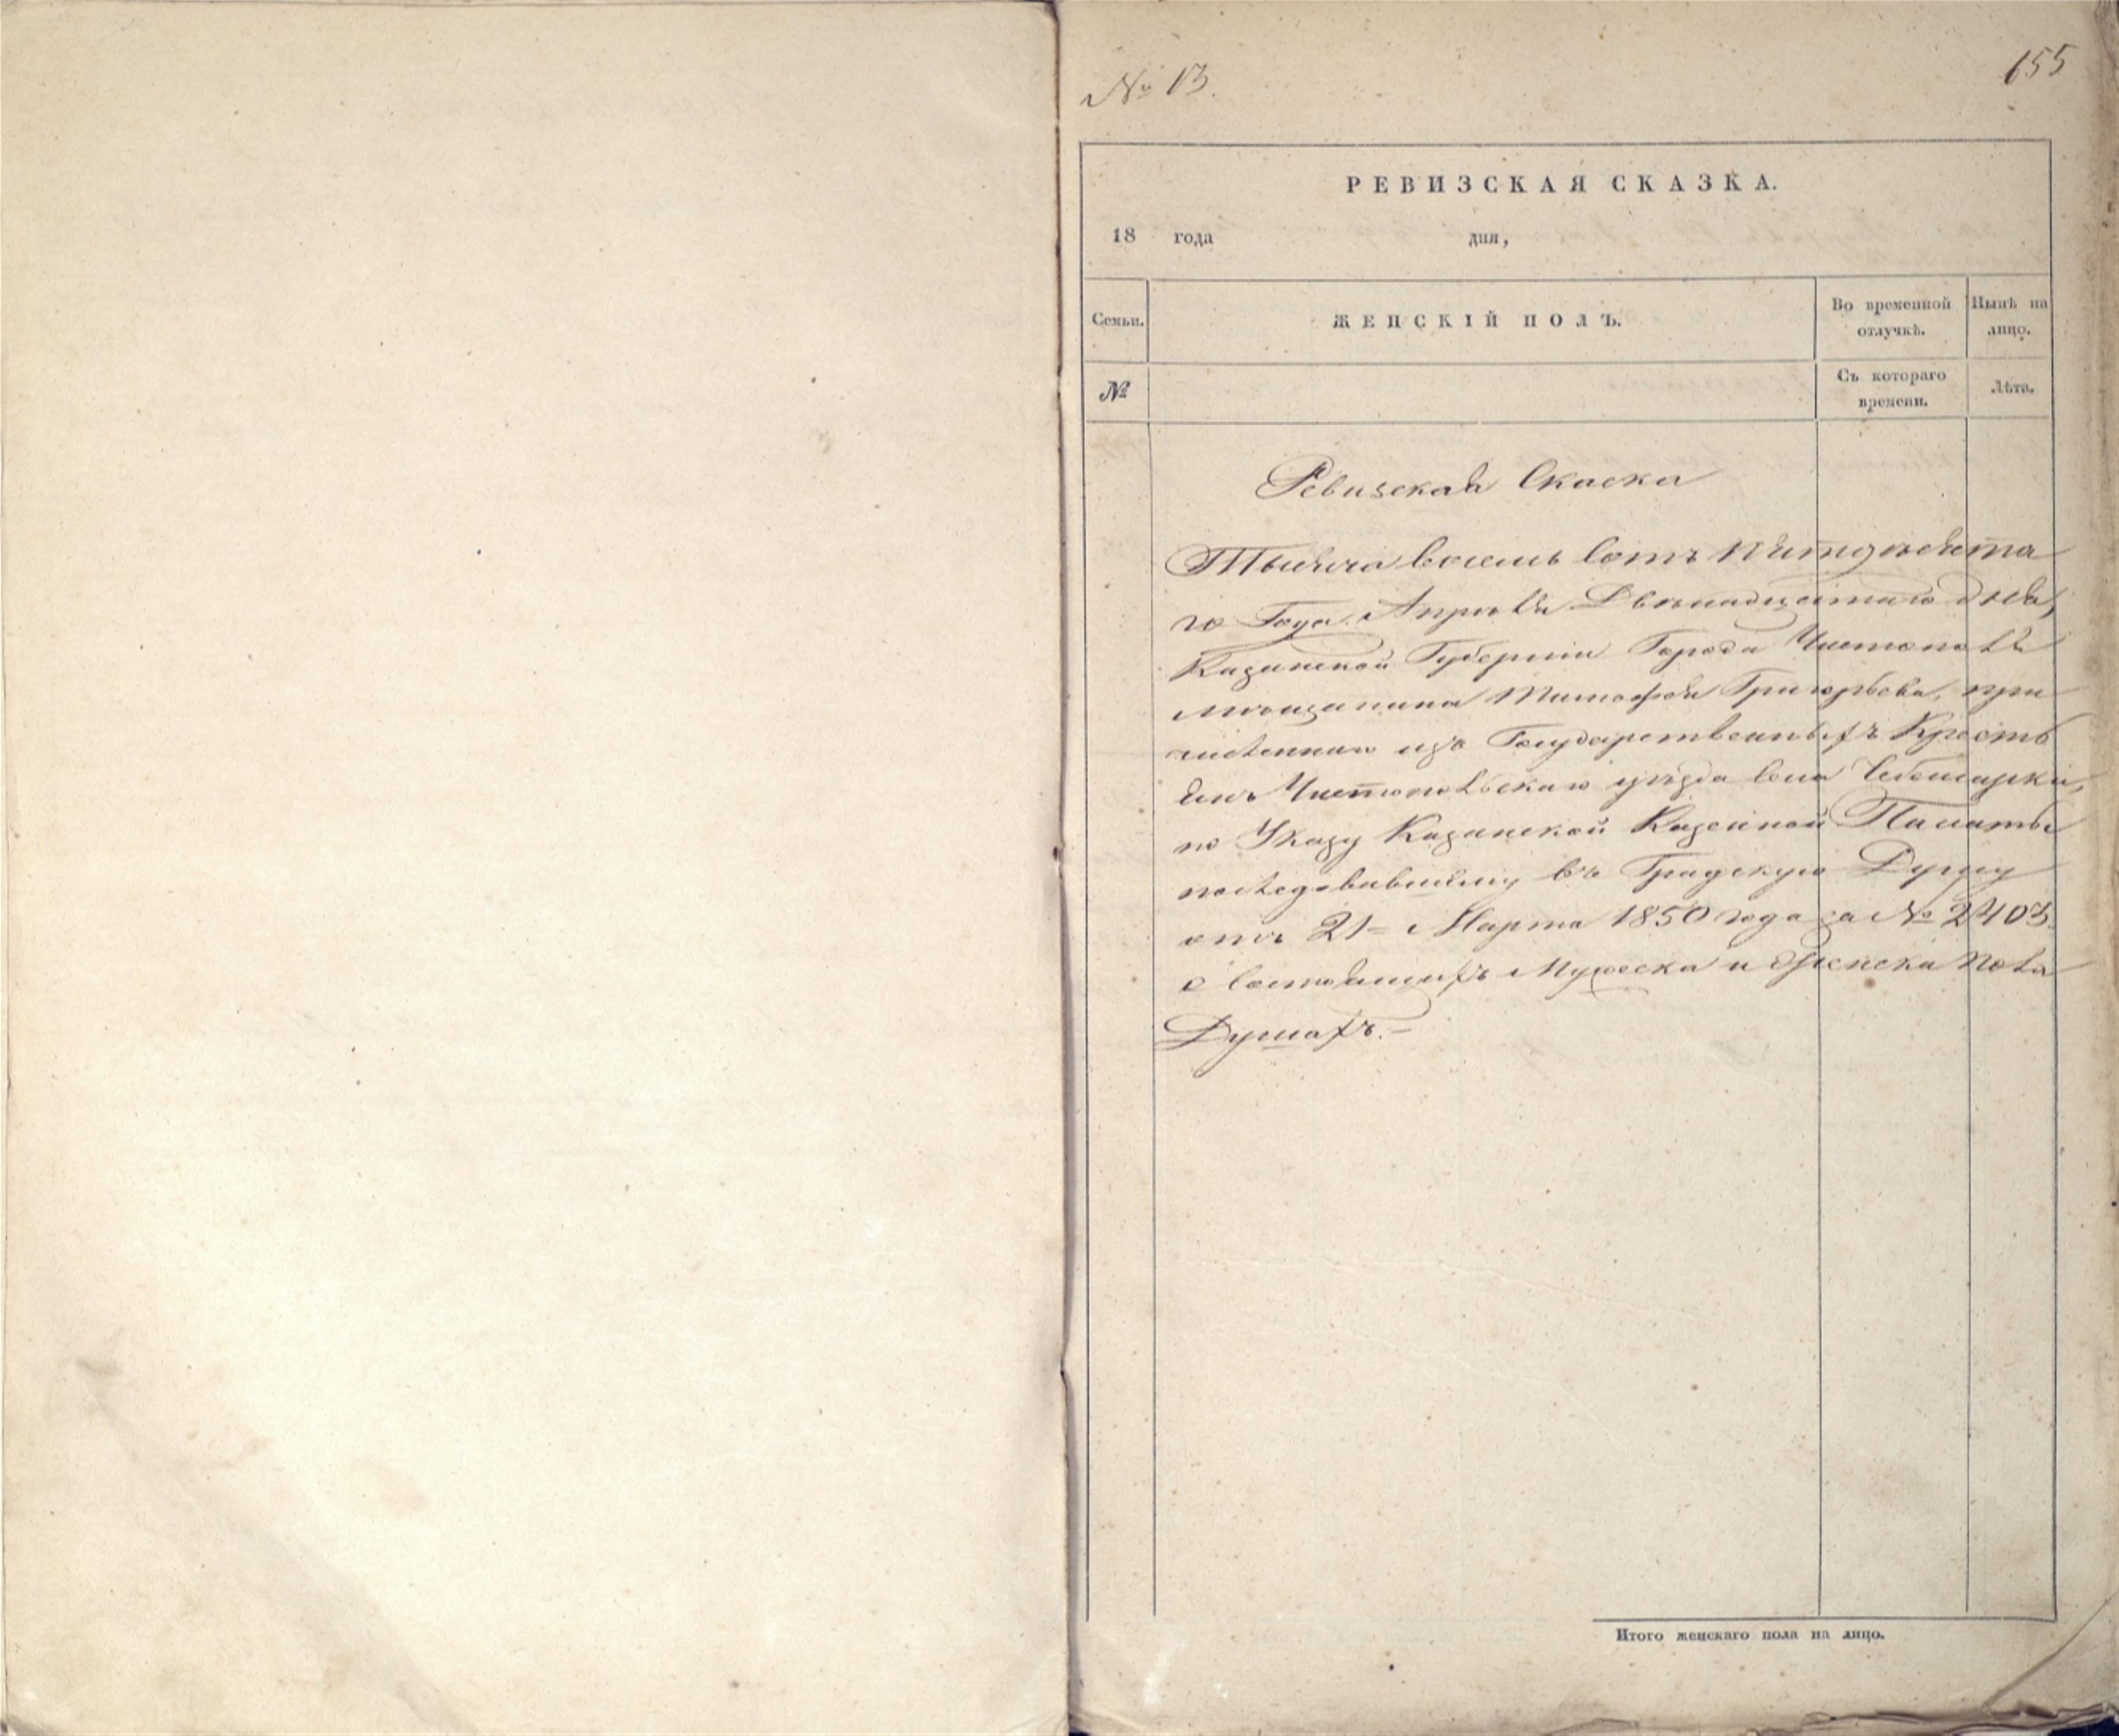 № 13.
155
РЕВИЗСКАЯ СКАЗКА.
18 года дня,
Семьи. ЖЕНСКІЙ ПОЛЪ. Во временной отлучкѣ. Нынѣ на лицо.
№ Съ котораго времени. Лѣта.
Ревизская Скаска
Тысяча восемь сотъ пятдесята
го Года Апрѣля Двѣнадцетаго дня,
Казанской Губерніи Города Чистополя
мѣщанина Тимофея Григорьева, при
численнаго изъ Государственныхъ Кресть
янъ Чистопольскаго уѣзда села Чебоксарки,
по Указу Казанской Казенной Палаты
последовавшему въ Градскую Думу
отъ 21 = Марта 1850 года за № 2403.
о состоящихъ Мужеска и Женска пола
Душахъ. –
Итого женскаго пола на лицо.